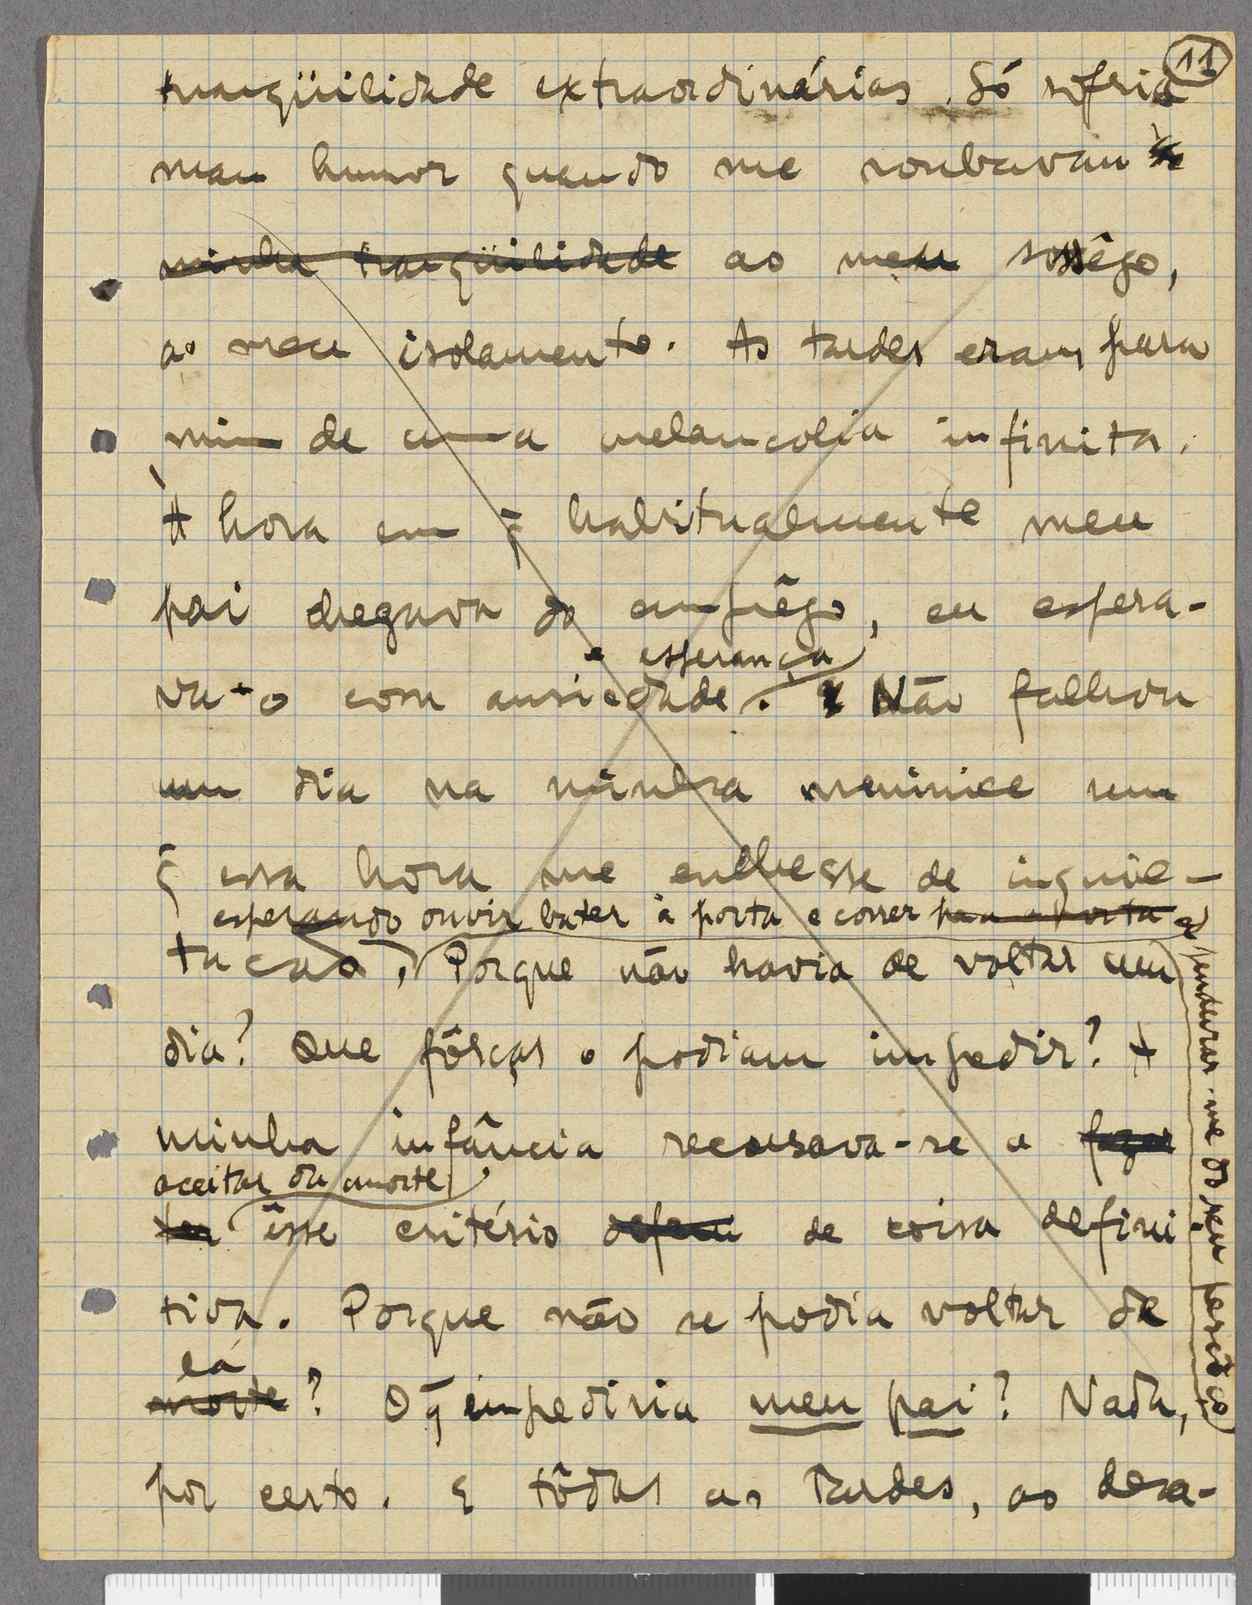 11
tranqüilidade extraordinárias. Só sofria
mau humor quando me roubavam
minha tranqüilidade ao meu sossêgo,
ao meu isolamento. As tardes eram para
mim de uma melancolia infinita.
À hora em q̄ habitualmente meu
pai chegava do emprêgo, eu espera-
e esperança
va-o com ansiedade. Não falhou
um dia na minha meninice sem
q̄ essa hora me enchesse de inquie-
esperando ouvir bater à porta e correr para a porta e
tação. Porque não havia de voltar um
pendurar-me do seu pescôço
dia? Que fôrças o podiam impedir? A
minha infância recusava-se a fazer
aceitar da morte
ter êsse critério defem de coisa defini
tiva. Porque não se podia voltar de
lá
morte? O q̄ impediria meu pai? Nada,
por certo. E tôdas as tardes, ao desa-